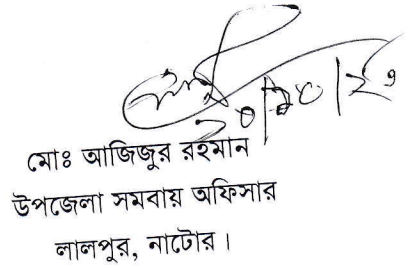 মোঃ আজিজুর রহমান
উপজেলা সমবায় অফিসার
লালপুর, নাটোর।